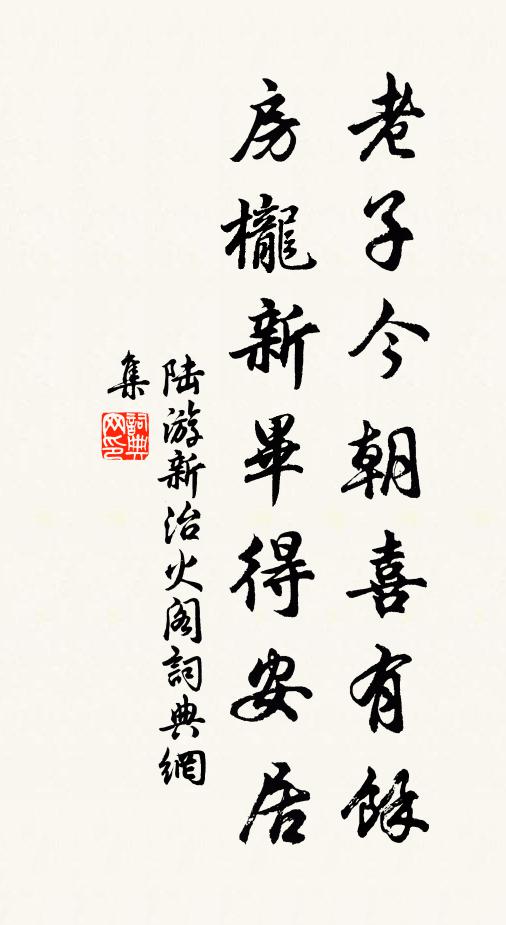 老子今朝喜有餘
房櫳新畢得安居
陆游新治火阁詞典網
集
詞典网印